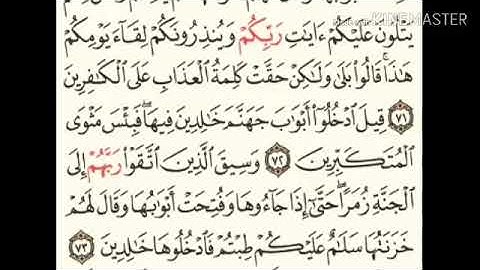 Made With
KINEMASTER
يَتْلُونَ عَلَيْكُمْ ءَايَٰتِ رَبِّكُمْ وَيُنذِرُونَكُمْ لِقَآءَ يَوْمِكُمْ
هَٰذَا ۚ قَالُوا۟ بَلَىٰ وَلَٰكِنْ حَقَّتْ كَلِمَةُ ٱلْعَذَابِ عَلَى ٱلْكَٰفِرِينَ
٧١ قِيلَ ٱدْخُلُوٓا۟ أَبْوَٰبَ جَهَنَّمَ خَٰلِدِينَ فِيهَا ۖ فَبِئْسَ مَثْوَى
ٱلْمُتَكَبِّرِينَ ٧٢ وَسِيقَ ٱلَّذِينَ ٱتَّقَوْا۟ رَبَّهُمْ إِلَى
ٱلْجَنَّةِ زُمَرًا ۖ حَتَّىٰٓ إِذَا جَآءُوهَا وَفُتِحَتْ أَبْوَٰبُهَا وَقَالَ لَهُمْ
خَزَنَتُهَا سَلَٰمٌ عَلَيْكُمْ طِبْتُمْ فَٱدْخُلُوهَا خَٰلِدِينَ ٧٣